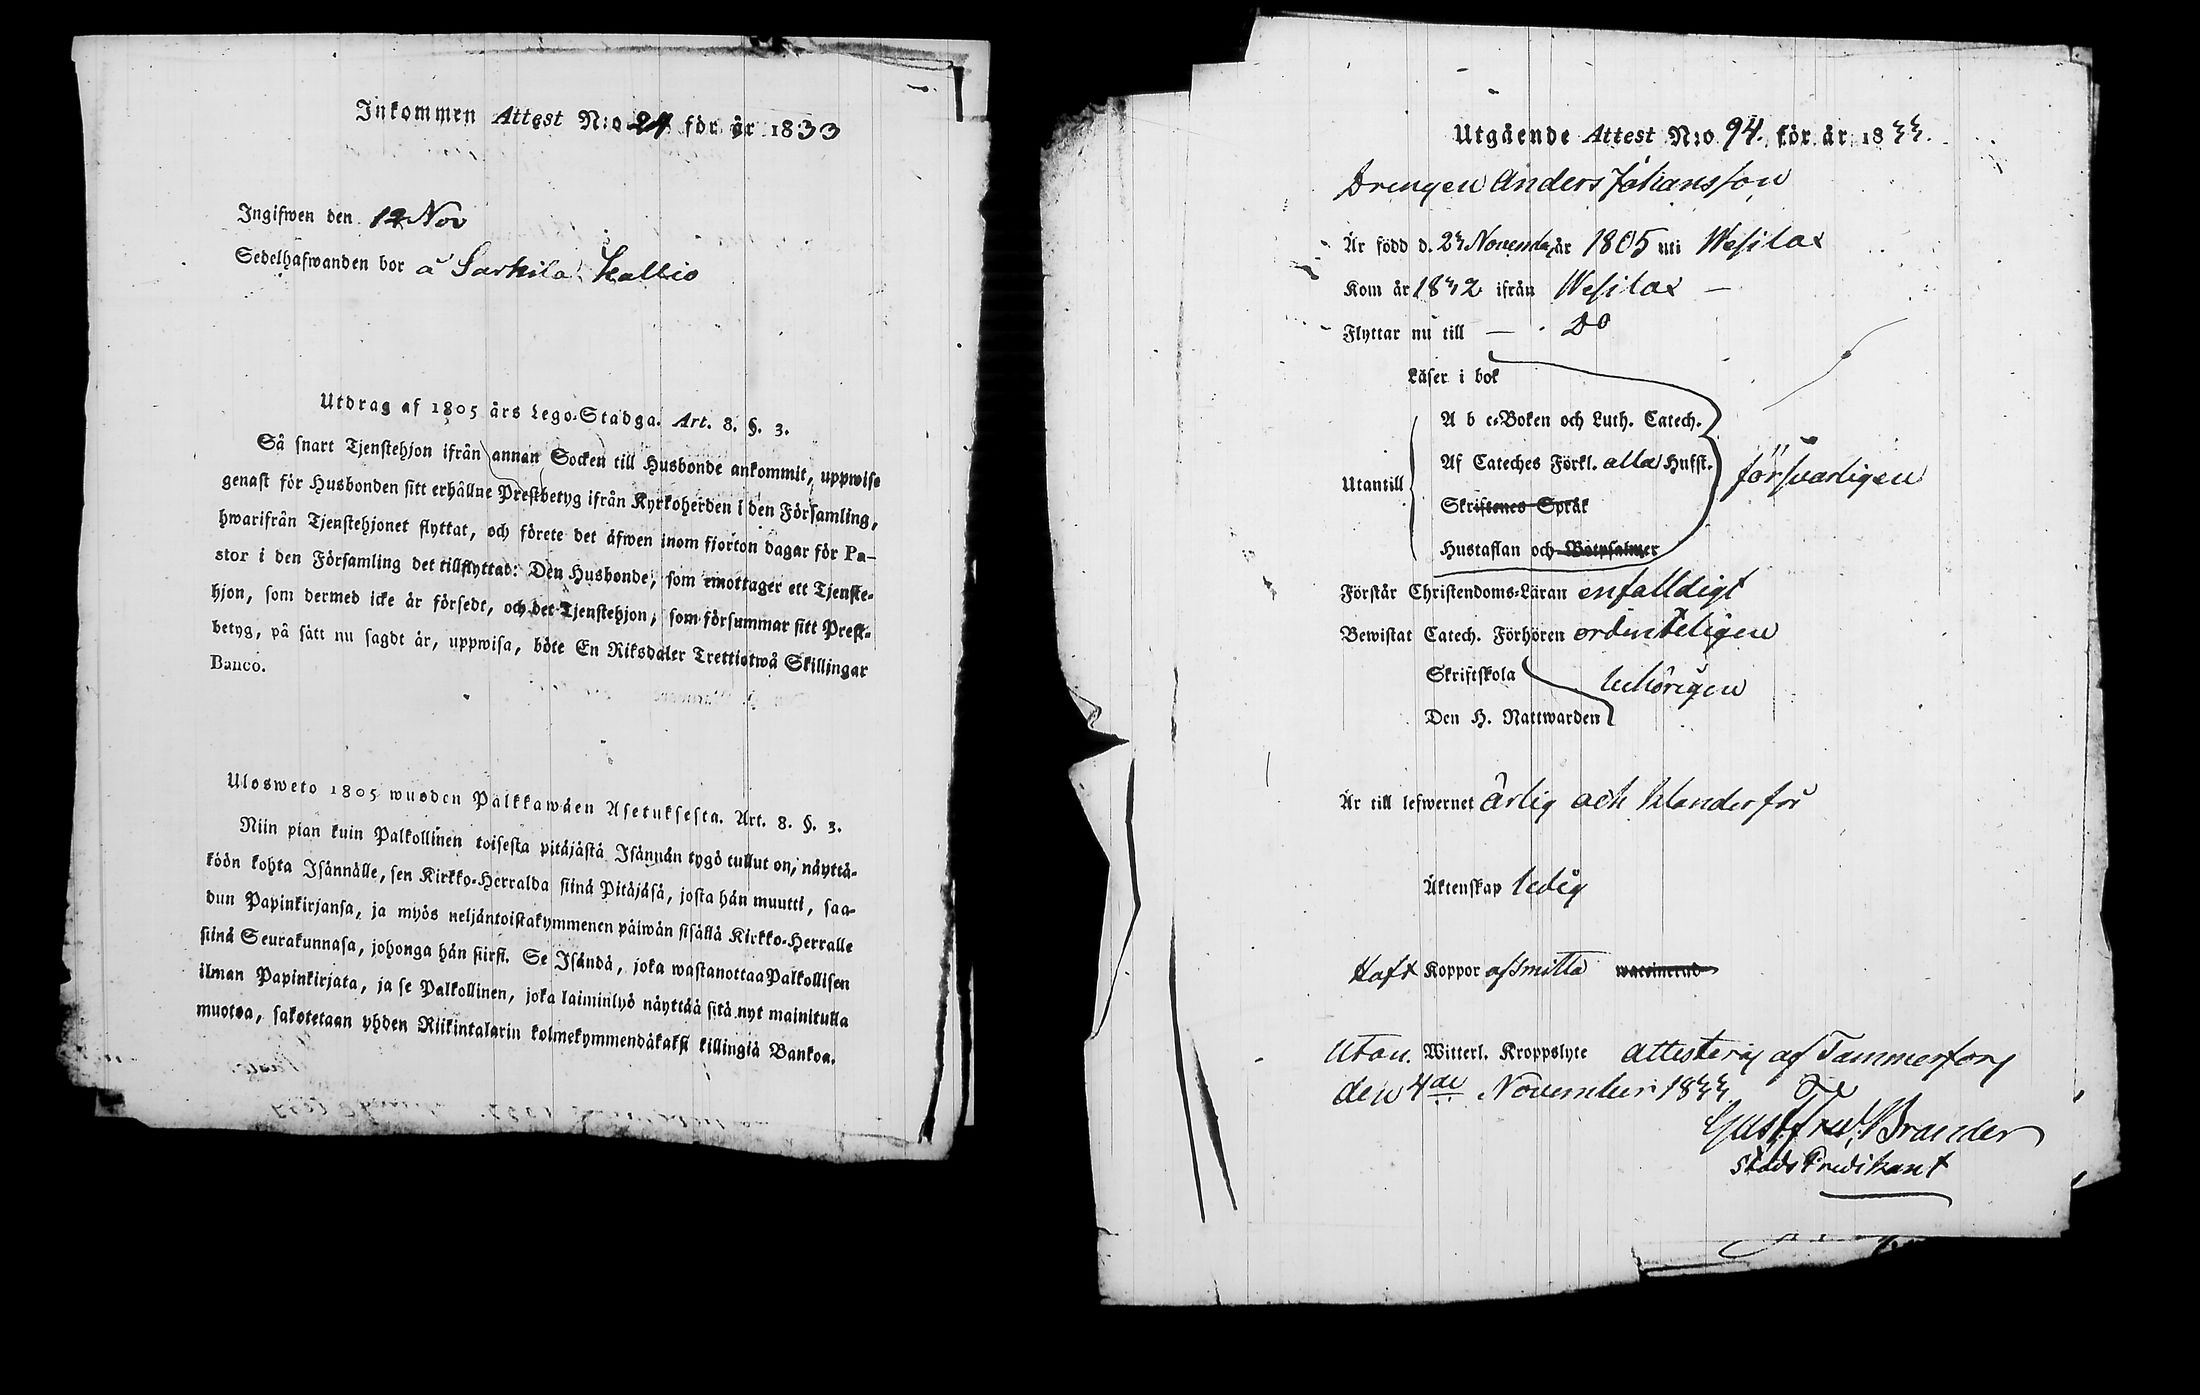 Inkommen Attest N:o 24 för år 1833
Ingifwen den 12 Nov
Sedelhafwanden bor å Sarkila Kallio
Utdrag af 1805 års Lego-Stadga. Art. 8. §. 3.
Så snart Tjenstehjon ifrån annan Socken till Husbonde ankommit, uppwise
genast för Husbonden sitt erhållne Prestbetyg ifrån Kyrkoherden i den Församling,
hwarifrån Tjenstehjonet flyttat, och förete det äfwen inom fjorton dagar för Pa-
stor i den Församling det tillflyttad: Den Husbonde, som emottager ett Tjenste-
hjon, som dermed icke är försedt, och det Tjenstehjon, som försummar sitt Prest-
betyg, på sätt nu sagdt är, uppwisa, böte En Riksdaler Trettiotwå Skillingar
Banco.
Ulosweto 1805 wuoden Palkkawäen Asetuksesta. Art. 8. §. 3.
Niin pian kuin Palkollinen toisesta pitäjästä Isännän tygö tullut on, näyttä-
köön kohta Isännälle, sen Kirkko-Herralda siinä Pitäjäsä, josta hän muutti, saa-
dun Papinkirjansa, ja myös neljäntoistakymmenen päiwän sisällä Kirkko-Herralle
siinä Seurakunnasa, johonga hän siirsi. Se Isändä, joka wastanottaa Palkollisen
ilman Papinkirjata, ja se Palkollinen, joka laiminlyö näyttää sitä nyt mainitulla
muotoa, sakotetaan yhden Riikintalarin kolmekymmendäkaksi killingiä Bankoa.
Utgående Attest N:o 94. för år 1833.
Drengen Anders Johansson
Är född d. 23 Novemb. år 1805 uti Wesilax
Kom år 1832 ifrån Wesilax —
Flyttar nu till — Do
Läser i bok
A b c-Boken och Luth. Catech.
Af Cateches Förkl. alla Hufst.
Utantill
försvarligen
Skriftenes Språk
Hustaflan och Botpsalmer
Förstår Christendoms-Läran enfalldigt
Bewistat Catech. Förhören ordenteligen
Skriftskola
behörigen
Den H. Nattwarden
Är till lefwernet ärlig och klanderfri
Äktenskap ledig
Haft Koppor assmitta waccinerad
Utan Witterl. Kroppslyte attesterar af Tammerfors
den 4de November 1833
Gust. Fred. Brander
Stads Predikant